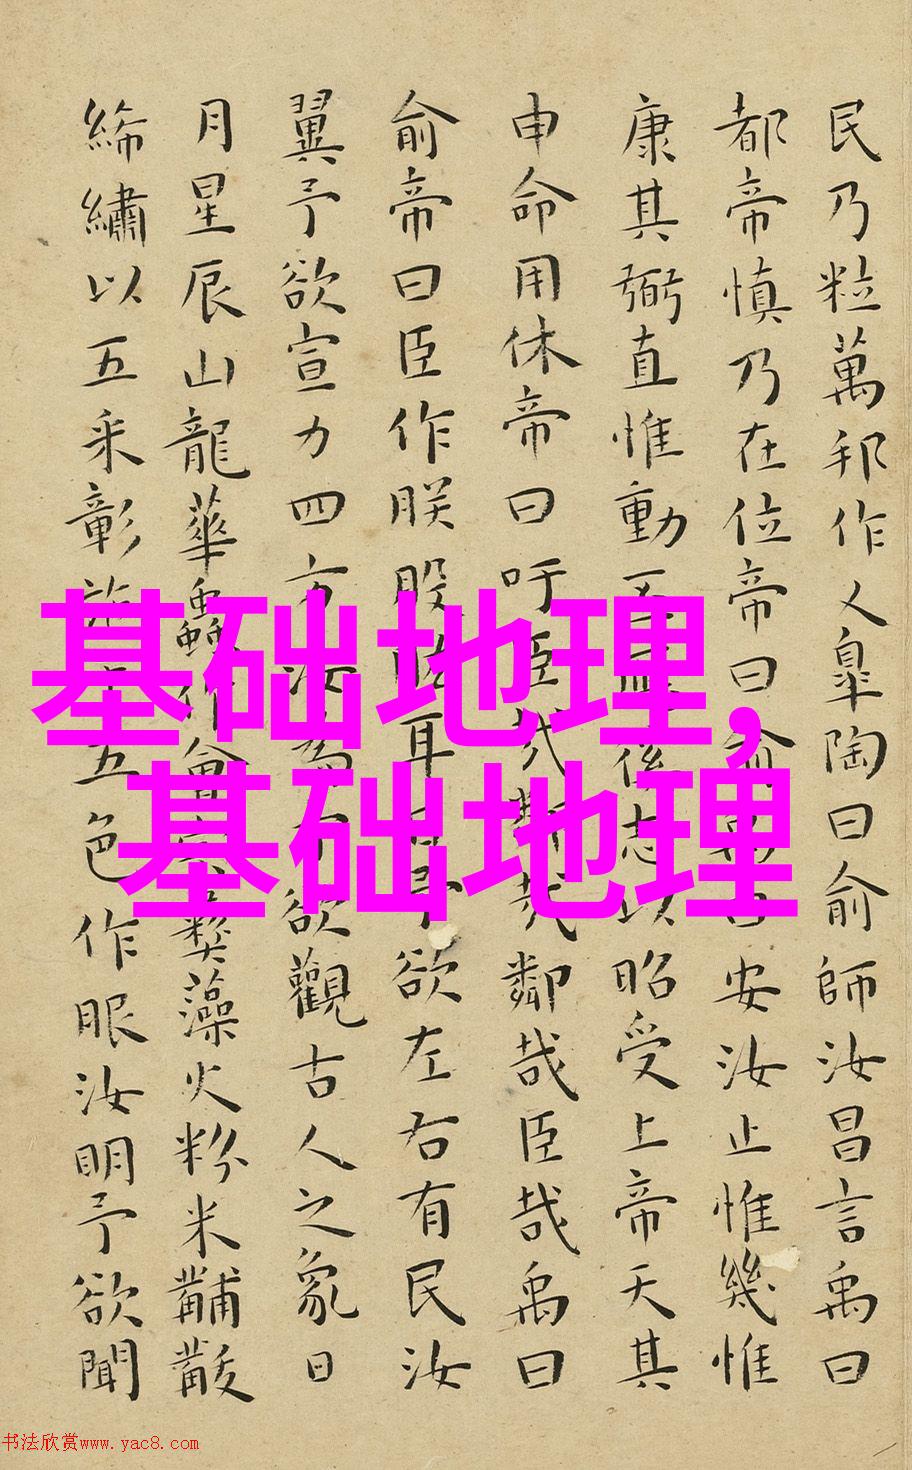 民乃粒萬邦作乂皐陶曰俞師汝昌言禹曰
都帝慎乃在位帝曰俞禹曰安汝止惟幾惟
康其弼直惟動丕應徯志以昭受上帝天其
申命用休帝曰吁臣哉鄰哉鄰哉臣哉禹曰
俞帝曰臣作朕股肱耳目予欲左右有民汝
翼予欲宣力四方汝為予欲觀古人之象日
月星辰山龍華蟲作會宗彝藻火粉米黼黻
絺繡以五采彰施于五色作服汝明予欲聞
基础地理,
基础地理
书法欣赏www.yac8.com